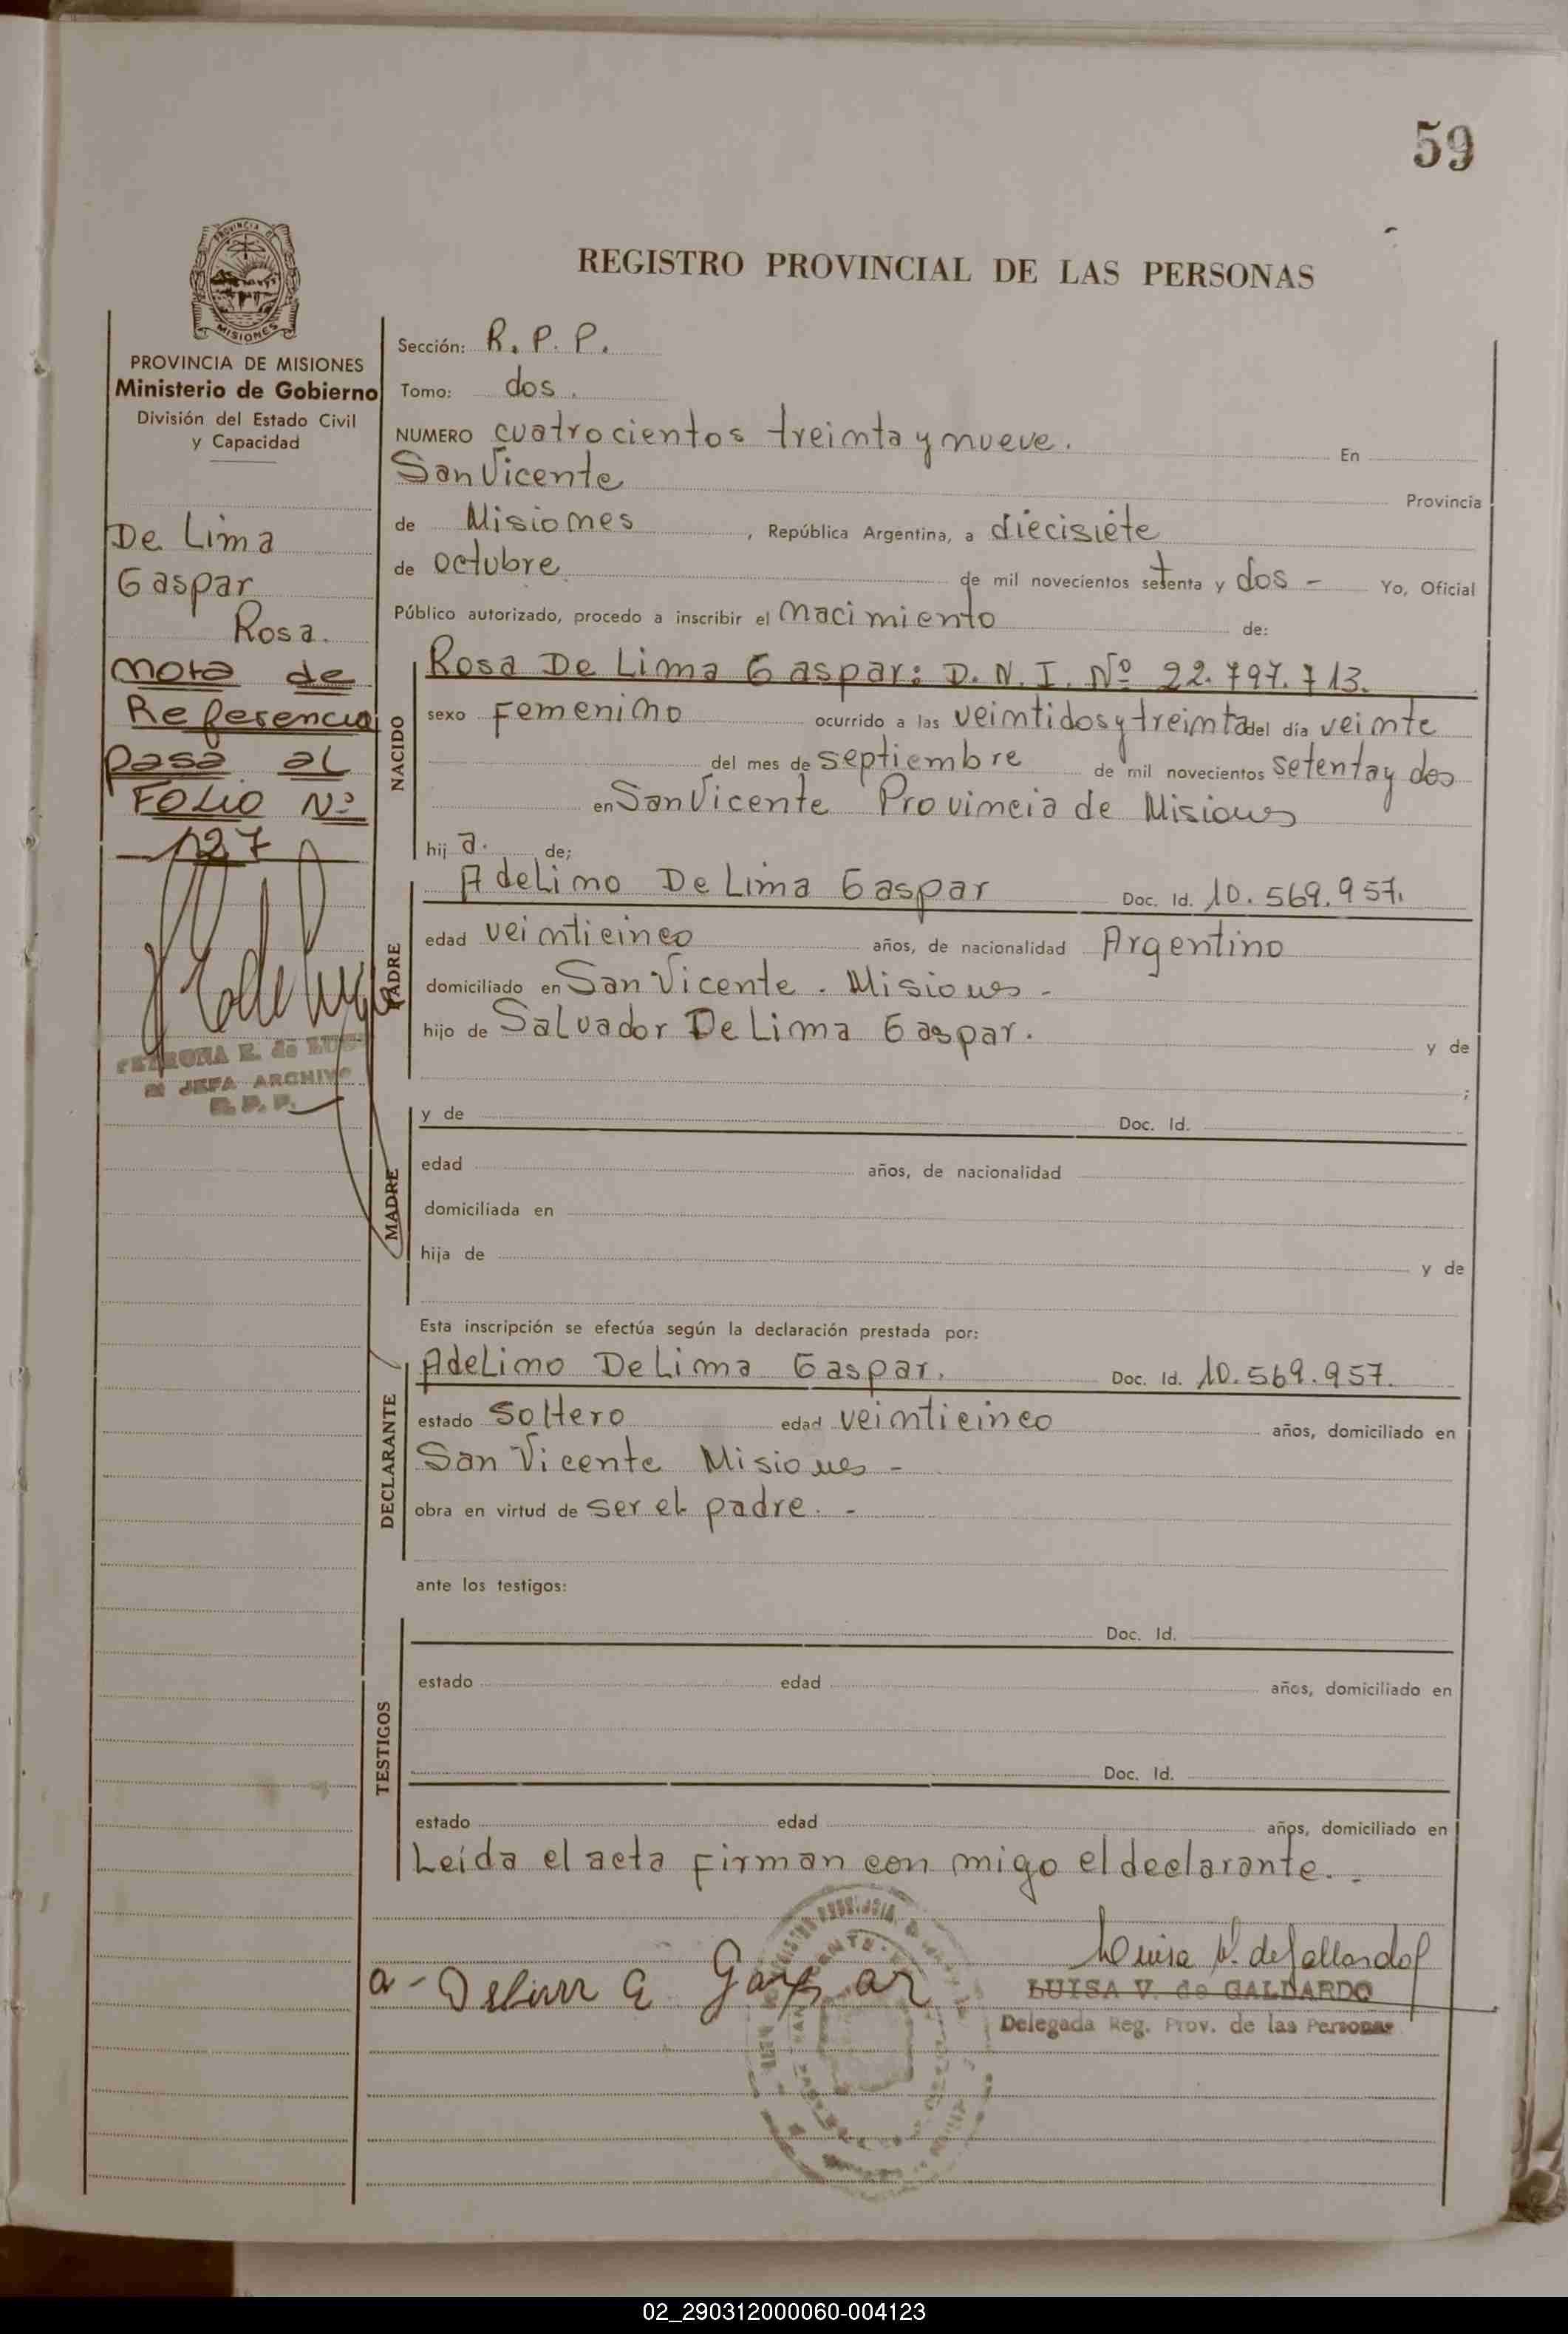 59
PROVINCIA DE
MISIONES
REGISTRO PROVINCIAL DE LAS PERSONAS
PROVINCIA DE MISIONES
Ministerio de Gobierno
División del Estado Civil
y Capacidad
De Lima
Gaspar
Rosa.
nota de
Referencia
pasa al
FOLIO Nº
127
PETRONA E. de
JEFA ARCHIVO
R. P. P.
Sección: R. P. P.
Tomo: dos.
NUMERO cuatrocientos treinta y nueve. En
San Vicente Provincia
de Misiones, República Argentina, a diecisiete
de octubre de mil novecientos setenta y dos - Yo, Oficial
Público autorizado, procedo a inscribir el nacimiento de:
NACIDO
Rosa De Lima Gaspar: D. N. I. Nº 22.797.713.
sexo Femenino ocurrido a las veintidos y treinta del día veinte
del mes de septiembre de mil novecientos setenta y dos
en San Vicente Provincia de Misiones
hij a. de;
PADRE
Adelino De Lima Gaspar Doc. Id. 10.569.957.
edad veinticinco años, de nacionalidad Argentino
domiciliado en San Vicente. Misiones -
hijo de Salvador De Lima Gaspar. y de
;
MADRE
y de Doc. Id.
edad años, de nacionalidad
domiciliada en
hija de y de
Esta inscripción se efectúa según la declaración prestada por:
DECLARANTE
Adelino De Lima Gaspar. Doc. Id. 10.569.957.
estado Soltero edad veinticinco años, domiciliado en
San Vicente Misiones -
obra en virtud de ser el padre. -
ante los testigos:
TESTIGOS
Doc. Id.
estado edad años, domiciliado en
Doc. Id.
estado edad años, domiciliado en
Leída el acta firman con migo el declarante. -
Luisa V. de Gallardo
LUISA V. de GALLARDO
Delegada Reg. Prov. de las Personas
02_290312000060-004123